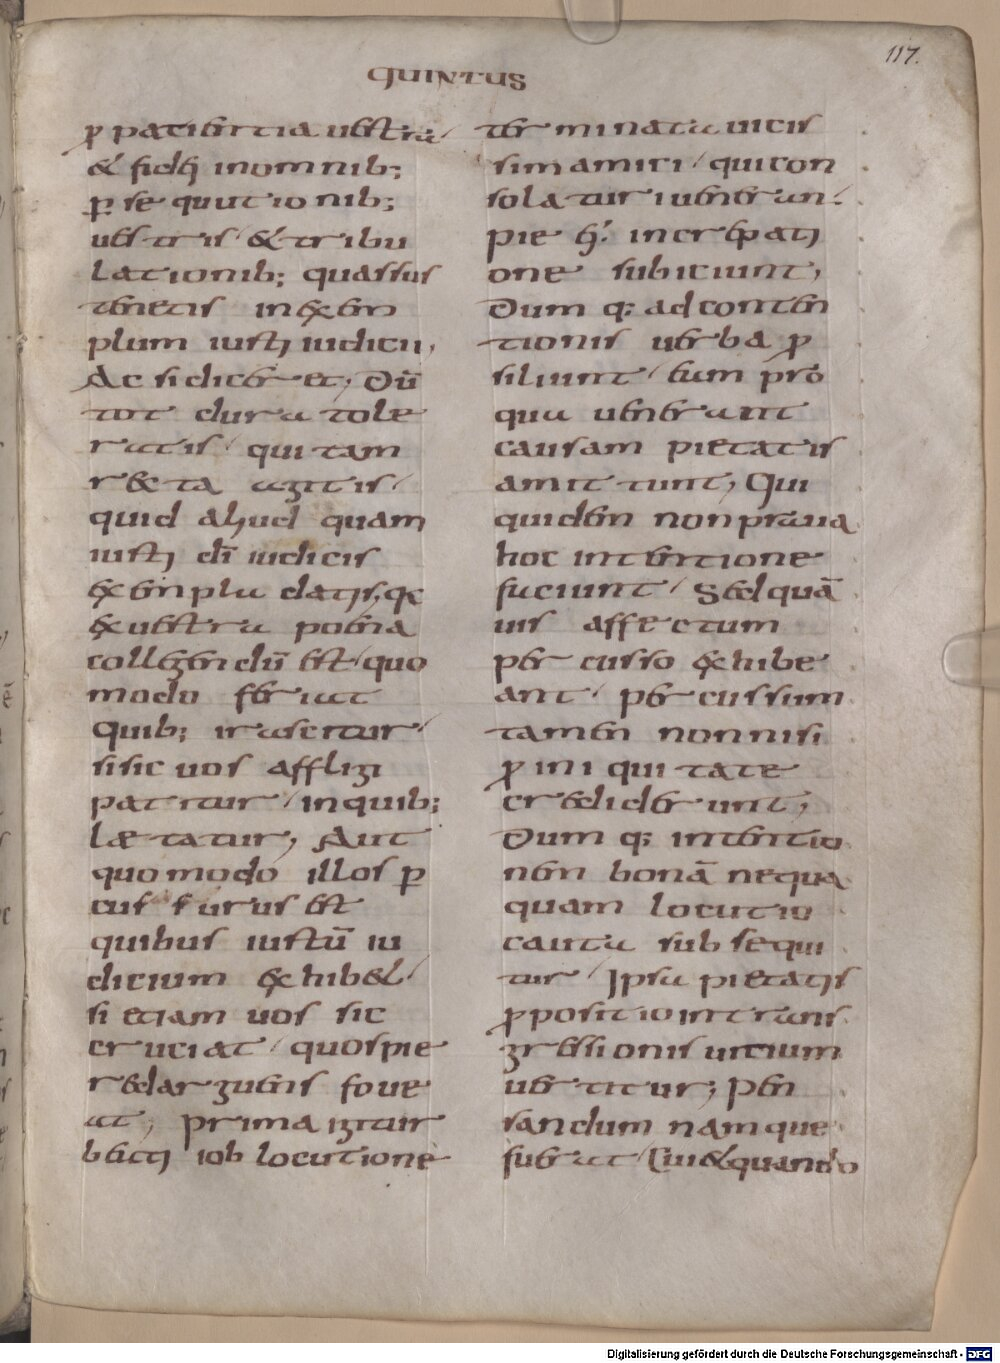 QUINTUS
117.
ꝓ patientia vestra
& fidei in omnib;
ꝑsequutionib;
vestris & tribu
lationib; quas sus
tenetis in exem
plum iusti iudicii,
Ac si diceret, Dū
tot dura tole
ratis qui tam
recta agitis
quid aliud quam
iusti dī iudicis
exempla datis, q̄
ex vestra poena
colligendū est quo
modo feriat
Quib; irascitur
si sic vos affligi
patitur in quib;
lætatur, Aut
quomodo illos ꝑ
cussurus est
quibus iustū iu
dicium exhibet
si etiam vos sic
cruciat quos pie
redarguens fove
at, Prima igitur
beati iob locutione
terminata vicis
sim amici qui con
solatur i veneran
pie h. increpati
one subiciunt,
Dum q; ad conten
tionis verba ꝓ
siliunt eam pro
qua venerant
causam pietatis
amittunt, Qui
quidem non prava
hoc intentione
faciunt Sed quā
vis affectum
percusso exhibe
ant percussum
tamen non nisi
ꝓ iniquitate
crediderunt,
Dum q; intentio
nem bonā nequa
quam locutio
cauta subsequi
tur Ipsa pietatis
ꝓpositio in trans
gressionis vitium
vertitur, Pen
sandum namque
fuerat Cui & quando
Digitalisierung gefördert durch die Deutsche Forschungsgemeinschaft - DFG